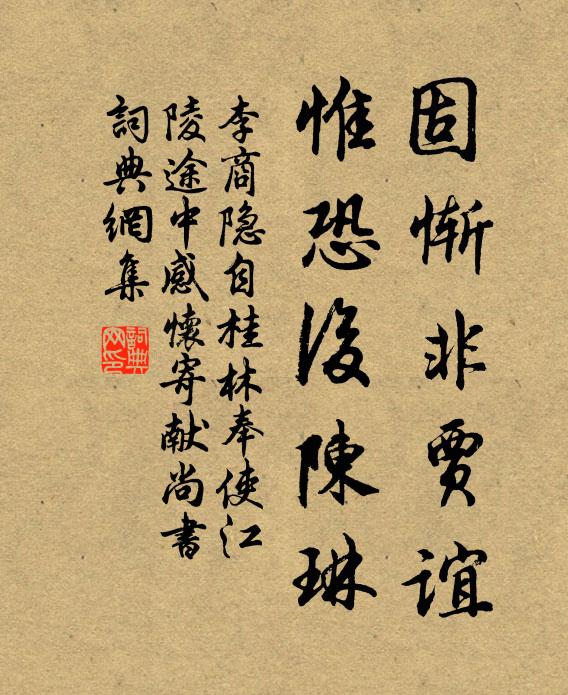 固慚非賈誼
惟恐後陳琳
李商隐自桂林奉使江
陵途中感懷寄献尚書
詞典網集
詞典网印